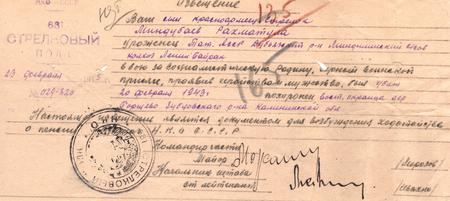 Извещение
НКО — СССР
631
СТРЕЛКОВЫЙ
ПОЛК
Ваш сын красноармеец
Миндубаев Рахматула
Уроженец Тат. АССР
колхоз Ленин Байрак
в бою за социалистическую родину, верный воинской
присяге, проявив геройство и мужество, был убит
23 февраля 1943 г.
20 февраля 1943 г. похоронен вост. окраина дер
№ 029-826
р-на Калининской обл
Настоящее извещение является документом для возбуждения ходатайства
о пенсии Н.К.О. С.С.С.Р.
Командир части
Майор
Начальник штаба
ст. лейтенант